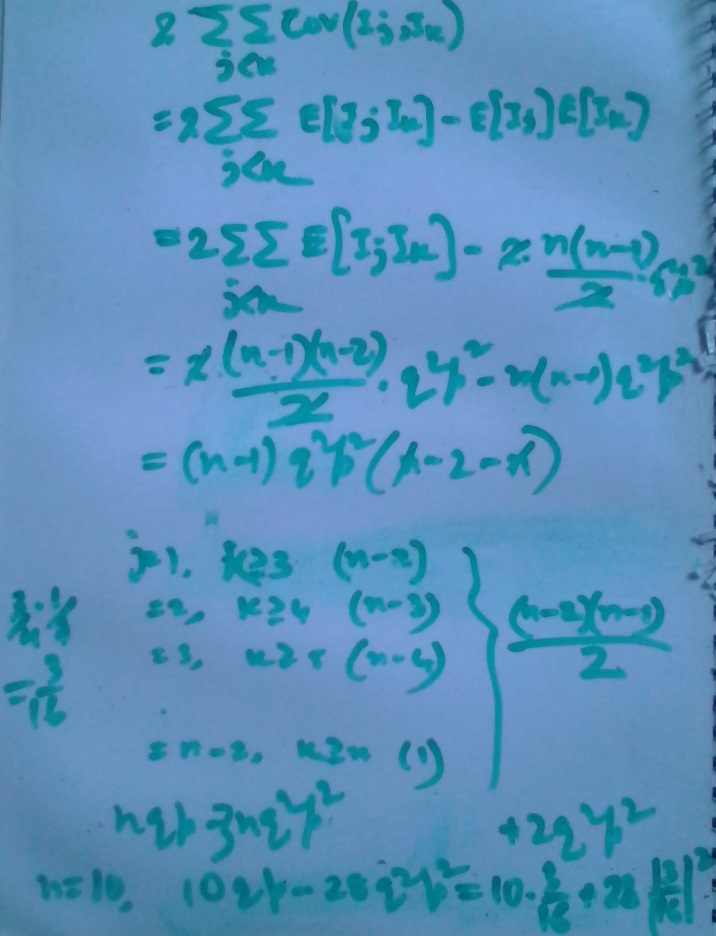 2 ΣΣ Cov(I_j, I_k)
j<k
= 2ΣΣ E[I_j I_k] - E[I_j]E[I_k]
j<k
= 2ΣΣ E[I_j I_k] - 2 · n(n-1)/2 · q²p²
j<k
= 2 (n-1)(n-2)/2 · q²p² - n(n-1) q²p²
= (n-1) q²p² (n-2-n)
j=1, k≥3 (n-2)
=2, k≥4 (n-3)
=3, k≥5 (n-4)
(n-2)(n-1)/2
3/4 · 1/4
= 3/16
= n-2, k≥n (1)
nqp - 3nq²p² + 2q²p²
n=10, 10qp - 28q²p² = 10 · 3/16 + 28 (3/16)²